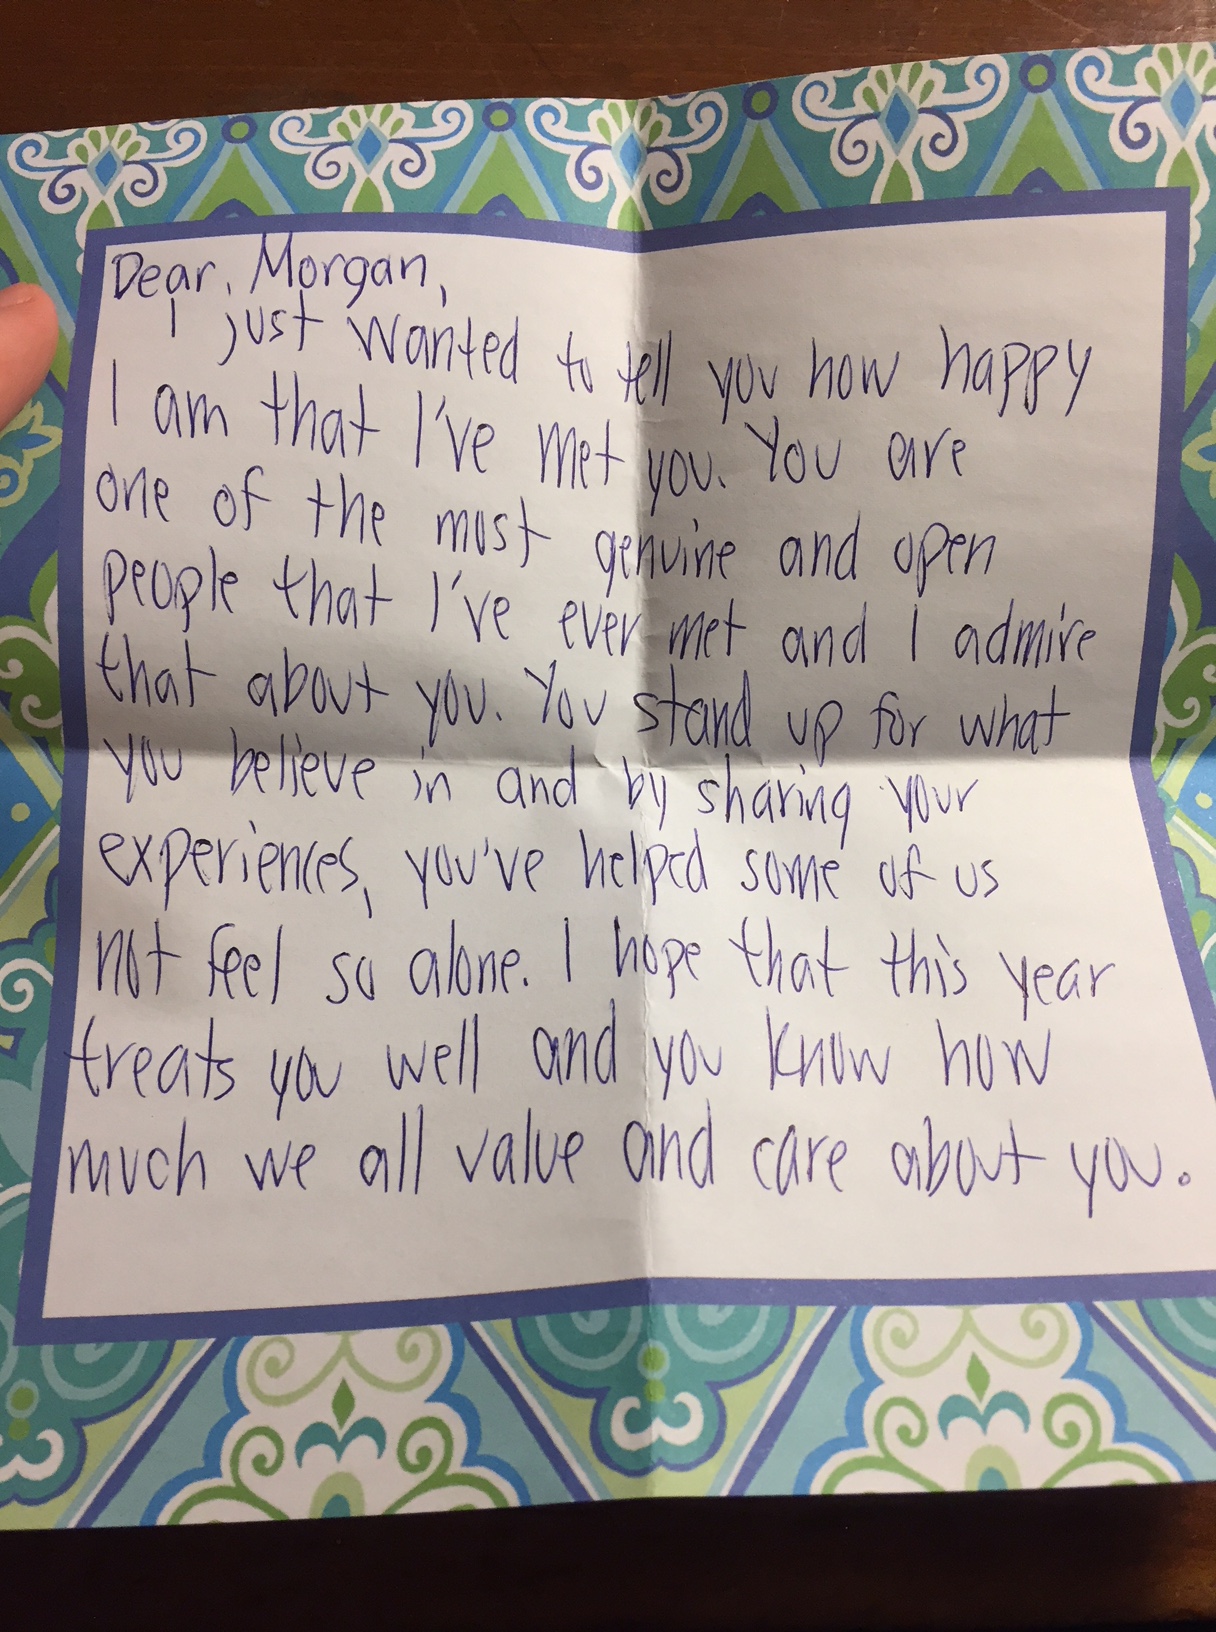 Dear, Morgan,
I just wanted to tell you how happy
I am that I've met you. You are
one of the most genuine and open
people that I've ever met and I admire
that about you. You stand up for what
you believe in and by sharing your
experiences, you've helped some of us
not feel so alone. I hope that this year
treats you well and you know how
much we all value and care about you.